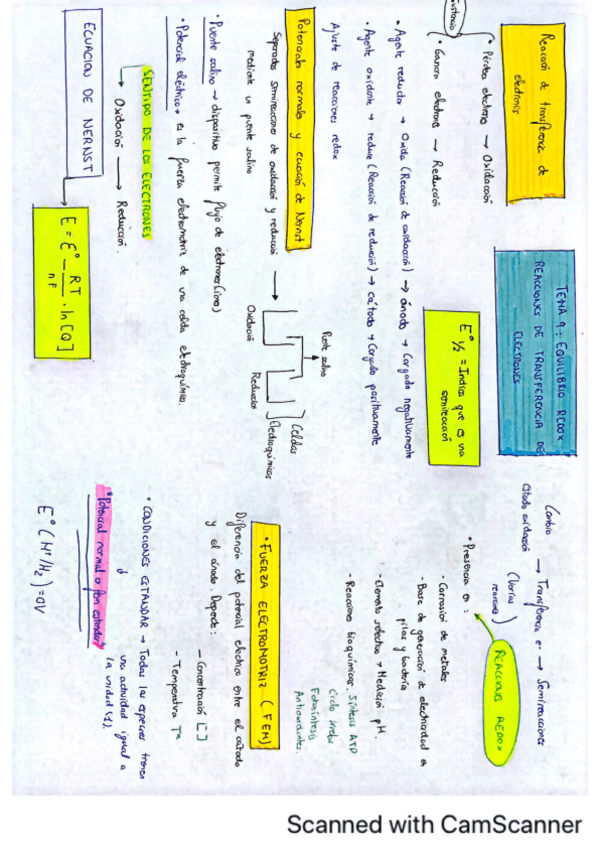 TEMA 9: EQUILIBRIO REDOX
REACCIONES DE TRANSFERENCIA DE
ELECTRONES
Reacción de transferencia de
electrones
Pérdida electrons → Oxidacción
Ganancia electrons → Reducción
E° 1/2 = Indica que es una
semireacción
• Agente reductor → Oxida (Reacción de oxidacción) → ánodo → Cargado negativamente
• Agente oxidante → reduce (Reacción de reducción) → cátodo → Cargado positivamente
Ajuste de reacciones redox
Potenciales normales y ecuación de Nernst
Separadas semirreacciones de oxidación y reducción →
mediante un puente salino
Puente salino
Oxidación
Reducción
Celdas
Electroquímicas
• Puente salino → dispositivo permite flujo de electrones (iones)
• Potencial eléctrico → es la fuerza electromotriz de una celda electroquímica.
SENTIDO DE LOS ELECTRONES
→ Oxidación → Reducción.
ECUACION DE NERNST
E = E° - RT/nF · ln [Q]
Cambio
estado oxidación → Transferencia e- → Semireacciones
(
reacciones)
REACCIONES REDOX
• Presencia en :
- Corrosión de metales
- Base de generación de electricidad en
pilas y batería
- Elemento selectivo → Medición pH.
- Reacciones bioquímicas. Síntesis ATP
Ciclo Krebs
Fotosíntesis
Antioxidantes.
• FUERZA ELECTROMOTRIZ (FEM)
Diferencia del potencial eléctrico entre el cátodo
y el ánodo. Depende:
- Concentración [ ]
- Temperatura Tª
• CONDICIONES ESTANDAR → Todas las especies tienen
una actividad igual a
la unidad (1).
"Potencial normal o fem estándar"
E° (H⁺/H₂) = 0V
Scanned with CamScanner